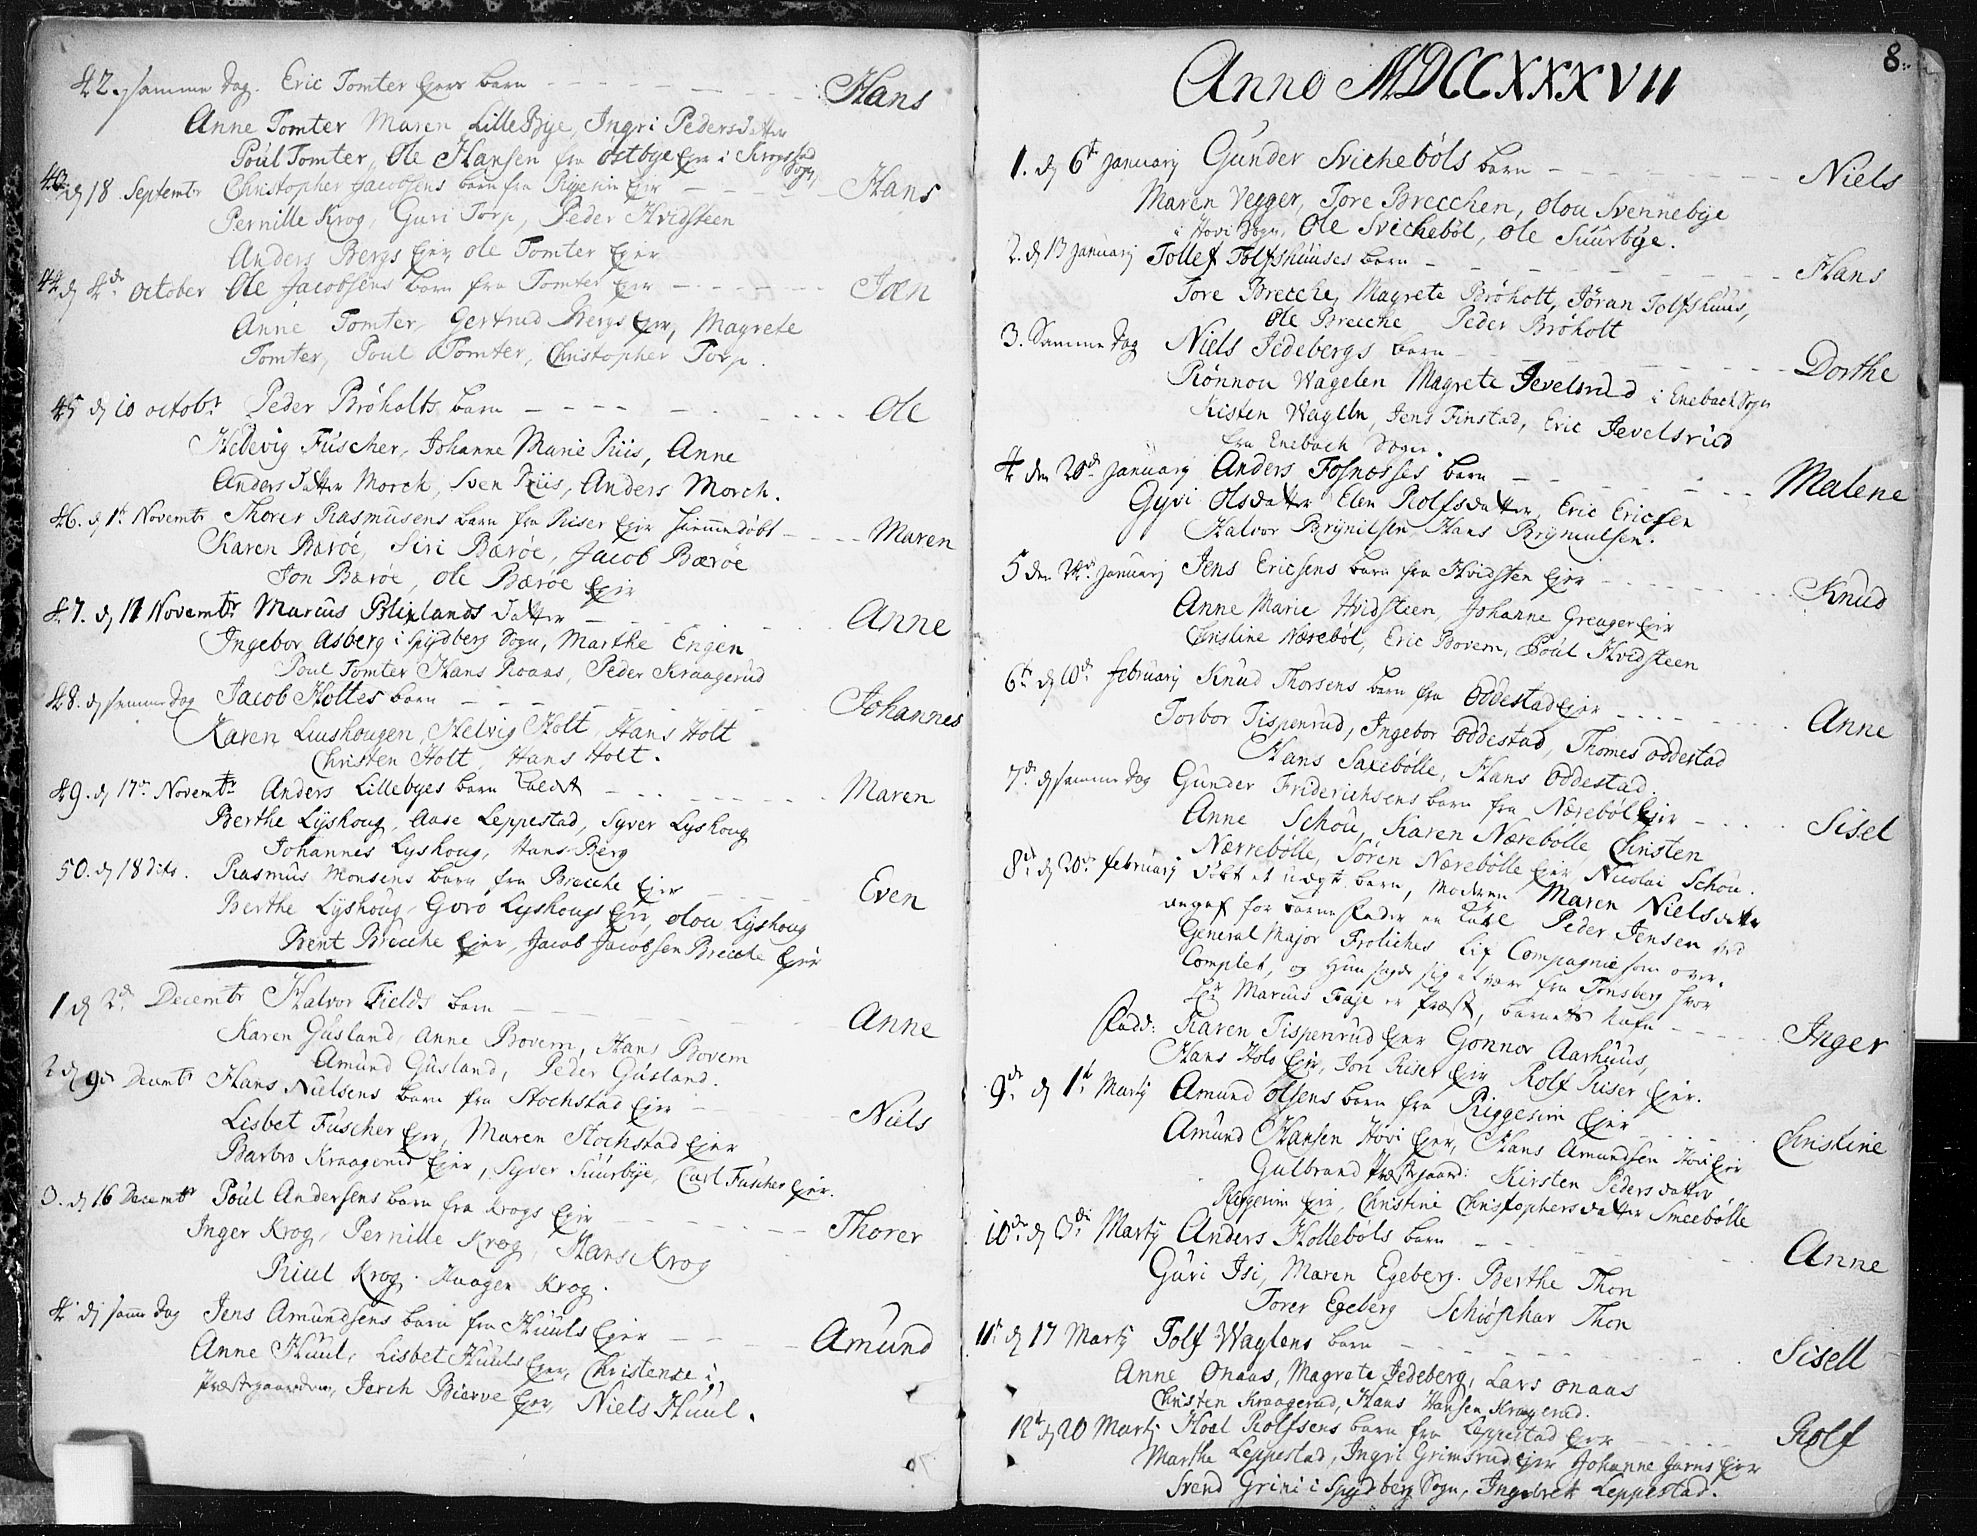 42. samme dag. Eric Tomter Ejers barn - - - Hans
Anne Tomter Maren LilleBye, Ingri Pedersdatter
Poul Tomter, Ole Hansen fra Østbye Ejer i Krogstad Sogn
43. dj 18 Septembr Christopher Jacobsens barn fra Riggesim Ejer - - - Hans
Pernille Krog, Guri Torp, Peder Hvidsteen
Anders Bergs Ejer, Ole Tomter Ejer
44 dj 4de October Ole Jacobsens barn fra Tomter Ejer - - - Joen
Anne Tomter, Gertrud Bergs Ejer, Magrete
Tomter, Poul Tomter, Christopher Torp.
45 dj 10 octobr Peder Brøholts barn - - - Ole
Hedevig Fuscher, Johanne Marie Riis, Anne
Andersdatter Morch, Sven Riis, Anders Morch.
46. dj 1t Novembr Thorer Rasmusens barn fra Riser Ejer hiemmedøbt - - - Maren
Karen Bærøe, Siri Bærøe, Jacob Bærøe
Jon Bærøe, Ole Bærøe Ejer
47. dj 11 Novembr Marcus Blixlands datter - - - Anne
Ingebor Asberg i Spydberg Sogn, Marthe Engen
Poul Tomter Hans Roaas, Peder Kraagerud
48. dj samme dag Jacob Holtes barn - - - Johannes
Karen Liushougen, Helvig Holt, Hans Holt
Christen Holt, Hans Holt.
49. dj 17de Novembr Anders Lillebyes barn kaldt - - - Maren
Berthe Lyshoug, Aase Leppestad, Syver Lyshoug
Johannes Lyshoug, Hans Berg
50. dj 18 dito. Rasmus Monsens barn fra Brecche Ejer - - - Even
Berthe Lyshoug, Goro Lyshougs Ejer, Olou Lyshoug
Bent Brecche Ejer, Jacob Jacobsen Brecche Ejer
1 dj 2de Decembr Halvor Fields barn - - - Anne
Karen Gusland, Anne Bovem, Hans Bovem
Amund Gusland, Peder Gusland.
2 dj 9de Decembr Hans Nielsens barn fra Stochstad Ejer - - - Niels
Lisbet Fuscher Ejer, Maren Stochstad Ejer
Barbro Kraagerud Ejer, Syver Suurbye, Carl Fuscher Ejer.
3. dj 16 Decembr Poul Andersens barn fra Krogs Ejer - - - Thorer
Inger Krog, Pernille Krog, Hans Krog
Riul Krog. Haagen Krog.
4 dj samme dag Jens Amundsens barn fra Huuls Ejer - - - Amund
Anne Huul, Lisbet Huuls Ejer, Christense i
Præstegaarden, Jerch Bierve Ejer, Niels Huul.
8.
Anno MDCCXXXVII
1. dj 6te January Gunder Svichebøls barn - - - Niels
Maren Vegger, Tore Brecchen, Olou Svennebye
i Hovi Sogn, Ole Svichebøl, Ole Suurbye.
2. dj 13 January Tollef Tolfshuuses barn - - - Hans
Tore Brecche, Magrete Brøholt, Jøran Tolfshuus,
Ole Brecche Peder Brøholt
3. Samme dag Niels Jedebergs barn - - - Dorthe
Rønnou Wagelen Magrete Jevelsrud i Enebach Sogn
Kisten Waglen, Jens Finstad, Eric Jevelsrud
fra Enebach Sogn.
4 den 20de January Anders Fosnæsses barn - - - Malene
Gyri Olsdatter Elen Rolfsdatter, Eric Ericsen
Halvor Brynilsen Hans Brynnulsen.
5 den 24de January Jens Ericsens barn fra Hvidsten Ejer - - - Knud
Anne Marie Hvidsteen, Johanne Greager Ejer
Christine Nærebøl, Eric Bovem, Poul Hvidsteen
6te dj 10de february Knud Thorsens barn fra Oddestad Ejer - - - Anne
Torbor Tispenrud, Ingebor Oddestad, Thomes Oddestad
Hans Saxebølle, Hans Oddestad.
7de dj samme dag Gunder Friderichsens barn fra Nærebøl Ejer - - - Sisel
Anne Schou, Karen Nærebølle, Christen
Nærrebølle, Søren Nærebølle Ejer Nicolai Schou.
8de dj 20de february døbt et uægte barn, Moderen Maren Nielsdatter
angaf for barnefader en karl Peder Jensen ved
General Major Frolichs Lif Compagnie som over-
Complet, og hun sagde sig at være fra Tønsberg hvor
Hr Marcus Faye er Præst, barnets nafn - - - Inger
Fadd: Karen Tispenrud Ejer Gonnor Aarhuus,
Hans Holo Ejer, Jon Riser Ejer Rolf Riser Ejer.
9de dj 1te Marty Amund Olsens barn fra Riggesim Ejer - - - Christine
Amund Hansen Hovi Ejer, Hans Amundsen Hovi Ejer
Gulbrand Præstegaard: Kirsten Pedersdatter
Riggesim Ejer, Christine Christophersdatter Smeebølle
10de dj 3de Marty Anders Hollebøls barn - - - Anne
Guri Isi, Maren Egeberg. Berthe Thon
Torer Egeberg Schiøphar Thon
11te dj 17 Marty Tolf Waglens barn - - - Sisell
Anne Onaas, Magrete Jedeberg, Lars Onaas
Christen Kraagerud, Hans Hansen Kraagerud.
12te dj 20 Marty Hoel Rolfsens barn fra Leppestad Ejer - - - Rolf
Marthe Leppestad, Ingri Grimsrud Ejer Johanne Jarns Ejer
Svend Grini i Spydberg Sogn, Ingebrett Leppestad.